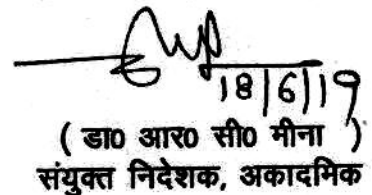 18/6/19
( डा0 आर0 सी0 मीना )
संयुक्त निदेशक, अकादमिक